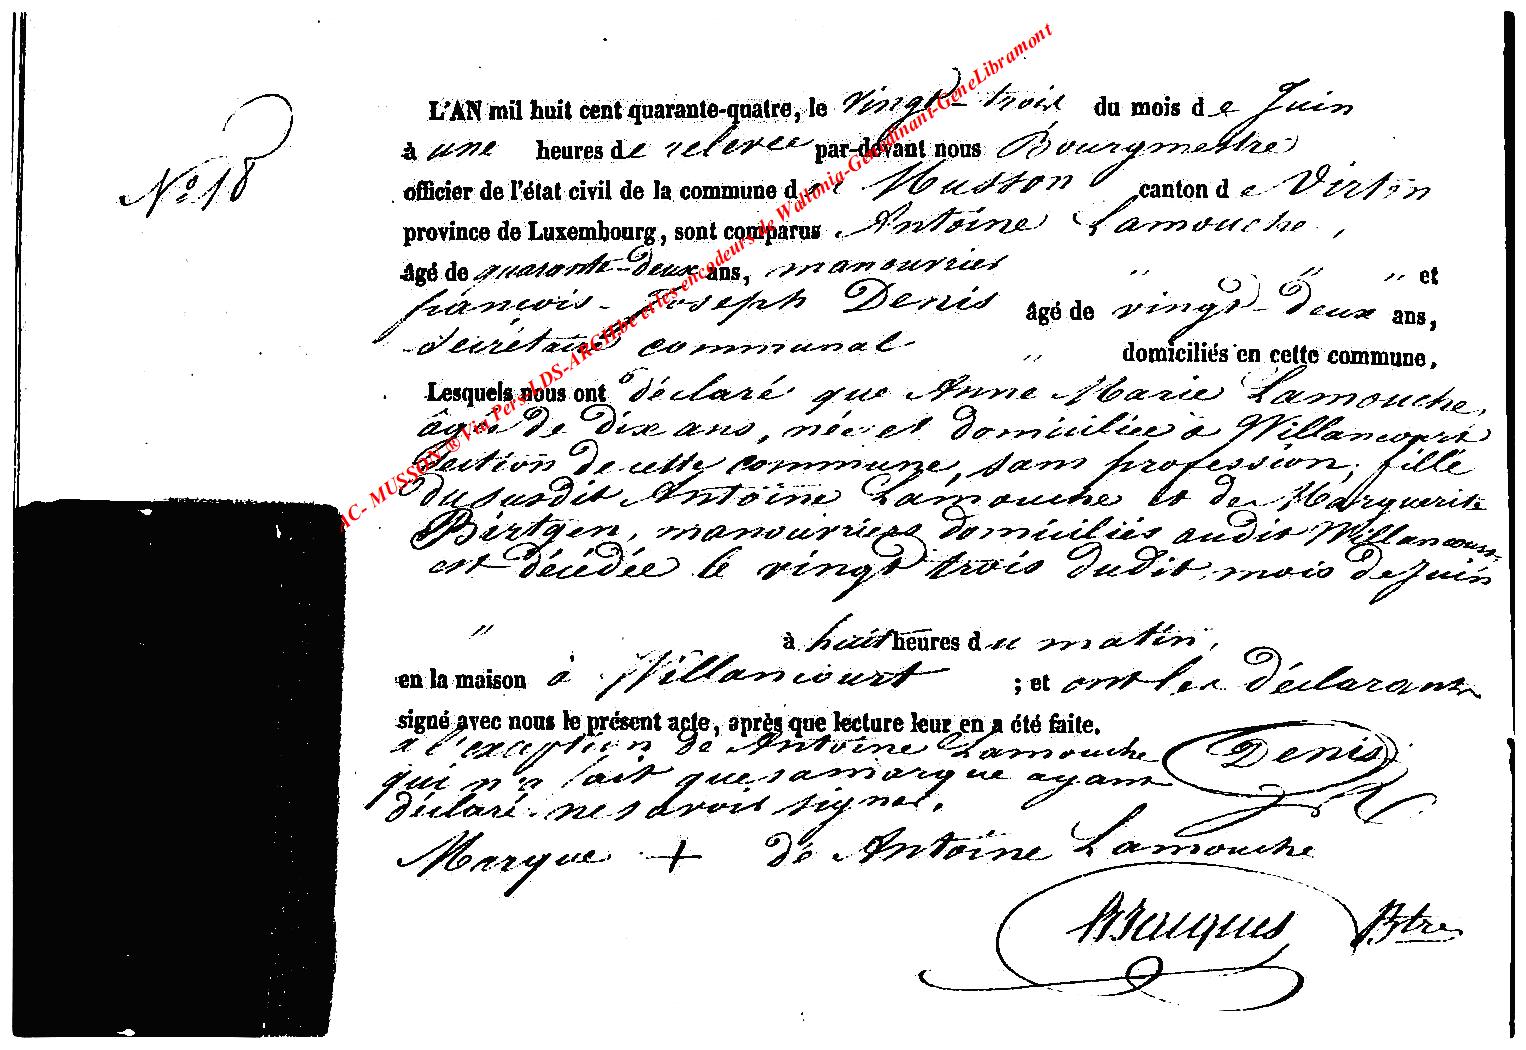 N° 18
L'AN mil huit cent quarante-quatre, le vingt-trois du mois de Juin
à une heures de relevée par-devant nous Bourgmestre
officier de l'état civil de la commune de Musson canton de Virton
province de Luxembourg, sont comparus Antoine Lamouche,
âgé de quarante-deux ans, manouvrier " " " et
françois-Joseph Denis âgé de vingt-deux ans,
Secrétaire communal " domiciliés en cette commune.
Lesquels nous ont déclaré que Anne Marie Lamouche,
âgée de dix ans, née et domiciliée à Willancourt
Section de cette commune, sans profession, fille
du susdit Antoine Lamouche et de Marguerite
Birtgen, manouvriers domiciliés audit Willancourt
est décédée le vingt trois dudit mois de Juin
" à huit heures du matin,
en la maison à Willancourt ; et ont les déclarants
signé avec nous le présent acte, après que lecture leur en a été faite.
à l'exception de Antoine Lamouche
qui n'a fait que sa marque ayant
déclaré ne savoir signer.
Denis
Marque + de Antoine Lamouche
Btre
AC- MUSSON ® Via Pers-LDS-ARCH.be et les encodeurs de Wallonia-Genedinant-GeneLibramont